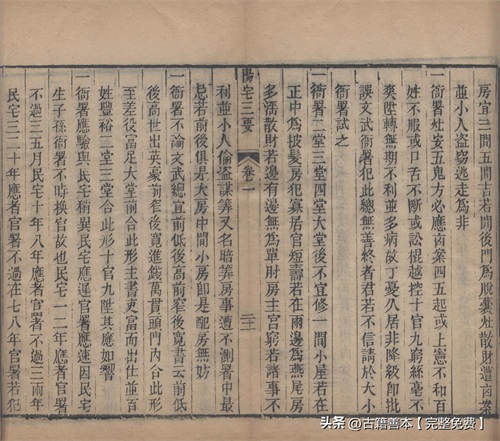 房宜三間五間吉若間房爲脫囊灶散財遭㐫案
並小人盜竊逃走爲非
一衙署灶安五鬼方必應㐫案四五起或上憲不和百
姓不服或口舌不斷或訟棍越控十官九窮絲毫不
爽陞轉無期不利並多病故丁憂久居非降級卽批
誤文武衙署犯此總無善終者君若不信請於大小
衙署試之
一衙署二堂三堂四堂大堂後不宜修一間小屋若在
正中爲披髮房犯寡居官短壽若在兩邊爲燕尾房
多濡散財若邊有邊無爲單財房主官窮若諸事不
陽宅三要 卷一
利並小人偷盜謀等又名暗等房事遭不測署中最
忌若前後俱是大房中間小房卽是配房無妨
一衙署不論文武總宜前低後高前窄後寬書云前低
後高世出英豪前窄後寬進錢萬貫頭門內合此形
至差役富足大堂前合此形主書吏富而出仕並百
姓豐裕二堂三堂合此形十官九陞其應如響
一衙署應驗與民宅稍異民宅應遲官署應速因民宅
生子孫衙署不時換官故也民宅一二年應者官署
不過三五月民宅十年八年應者官署不過三兩年
民宅三二十年應者官署不過在七八年官署若犯
头条 @古籍善本【完整免费】